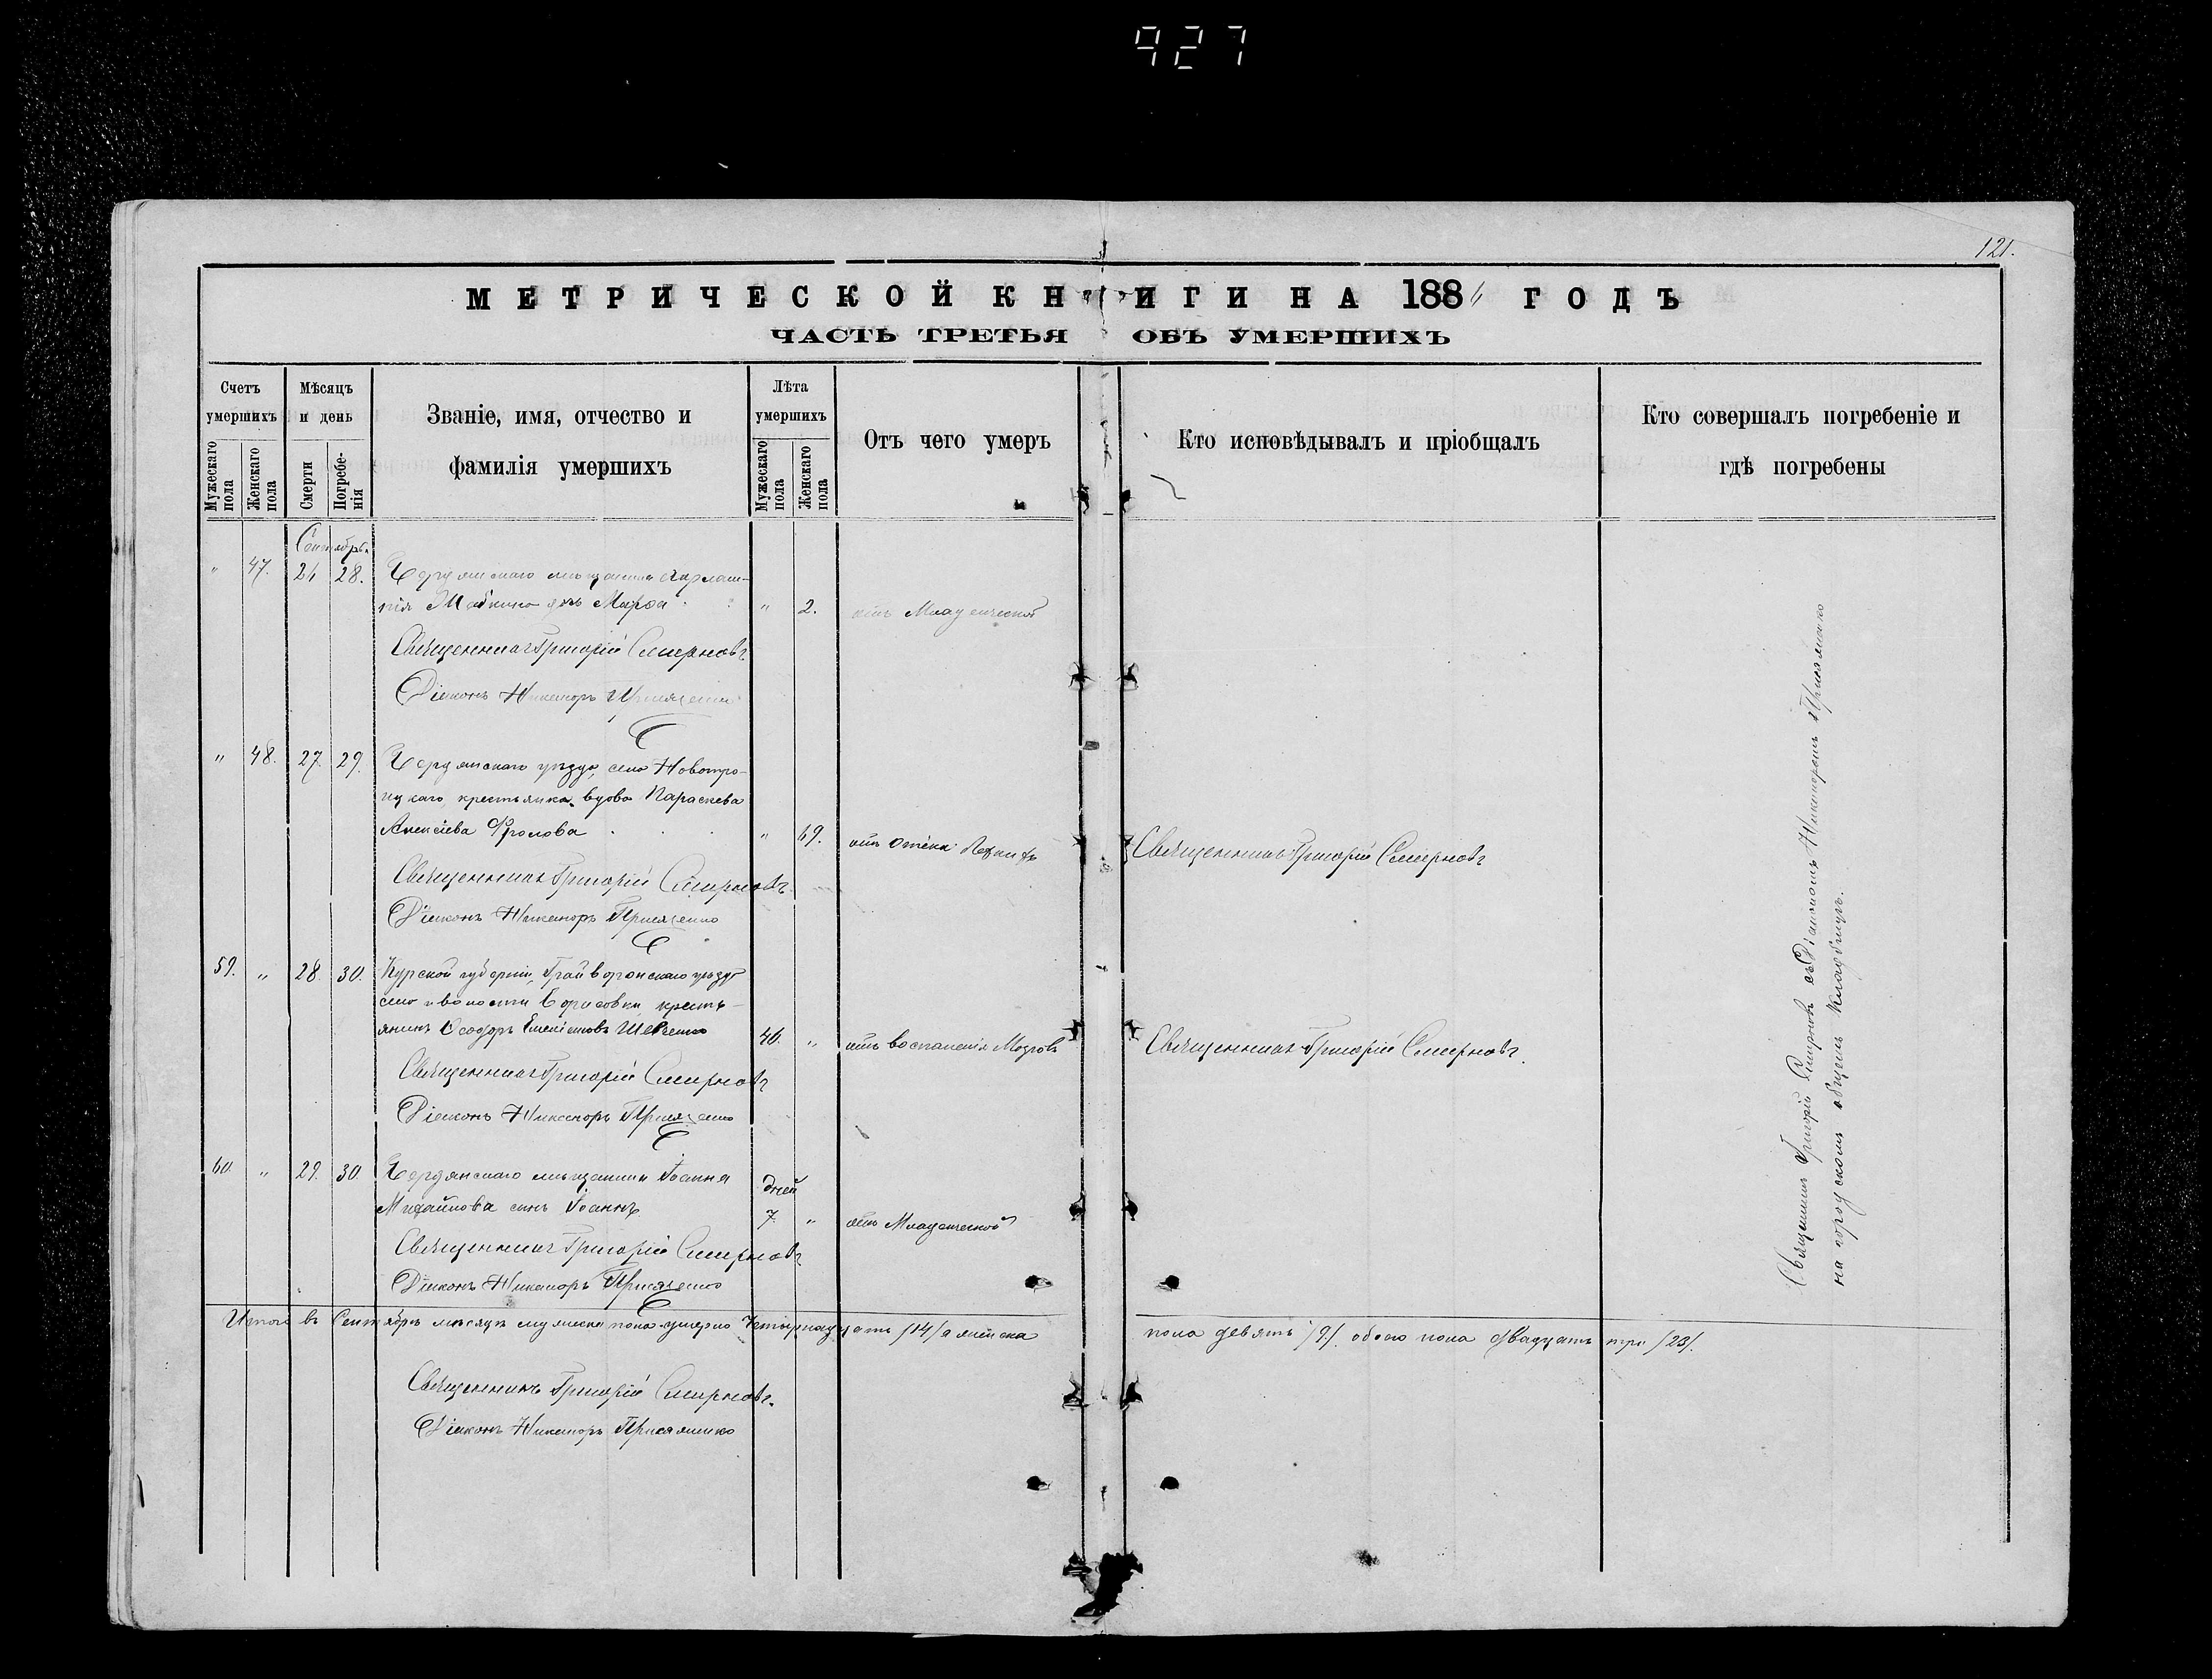 927
121.
МЕТРИЧЕСКОЙ КНИГИ НА 1886 ГОДЪ
ЧАСТЬ ТРЕТЬЯ ОБЪ УМЕРШИХЪ
Счетъ умершихъ
Мужескаго пола
Женскаго пола
Мѣсяцъ и день
Смерти
Погребенія
Званіе, имя, отчество и
фамилія умершихъ
Лѣта умершихъ
Мужескаго пола
Женскаго пола
Отъ чего умеръ
Кто исповѣдывалъ и пріобщалъ
Кто совершалъ погребеніе и
гдѣ погребены
Сентябрь.
" 47. 28. Бердянскаго мѣщанина
дочь Марѳа " 2. отъ Младенческой
Священникъ Григорій Смирновъ
Діаконъ Никаноръ Присяженко
" 48. 27. 29. Бердянскаго уѣзда, села Новотро-
ицкаго, крестьянка вдова Параскева
Алексіева Фролова " 69. отъ отёка Легкихъ Священникъ Григорій Смирновъ
Священникъ Григорій Смирновъ
Діаконъ Никаноръ Присяженко
59. " 28. 30. Курской губерніи, Грайворонскаго уѣзда
села и волости Борисовки, кресть-
янинъ Ѳеодоръ Шевченко 46. " отъ воспаленія Мозговъ Священникъ Григорій Смирновъ.
Священникъ Григорій Смирновъ
Діаконъ Никаноръ Присяженко
60. " 29. 30. Бердянскаго мѣщанина Іоанна дней
Михайлова сынъ Іоаннъ 7. " отъ Младенческой
Священникъ Григорій Смирновъ
Діаконъ Никаноръ Присяженко
Священникъ Григорій Смирновъ съ Діакономъ Никаноромъ Присяженко
на городскомъ общемъ кладбищѣ.
Итого въ Сентябрѣ мѣсяцѣ мужеска пола умерло Четырнадцать /14/ а женска пола девять /9/. обоего пола двадцать три /23/.
Священникъ Григорій Смирновъ.
Діаконъ Никаноръ Присяженко